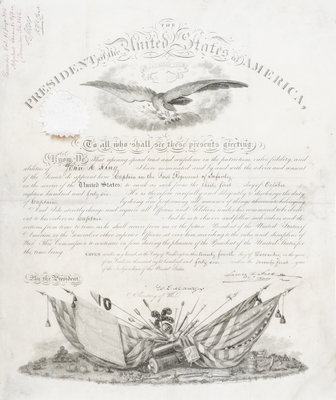 THE
PRESIDENT of the United States of AMERICA,
To all who shall see these presents greeting:
Know Ye, That reposing special trust and confidence in the patriotism, valor, fidelity, and
abilities of John H. King I have nominated and by and with the advice and consent
of the Senate do appoint him Captain in the First Regiment of Infantry
in the service of the United States: to rank as such from the thirty first day of October
eighteen hundred and forty six. He is therefore carefully and diligently to discharge the duty
of Captain by doing and performing all manner of things thereunto belonging.
And I do strictly charge and require all Officers and Soldiers under his command to be obedi-
ent to his orders as Captain. And he is to observe and follow such orders and di-
rections from time to time as he shall receive from me or the future President of the United States
of America, or the General or other superior Officers set over him according to the rules and discipline of
War. This Commission to continue in force during the pleasure of the President of the United States for
the time being.
GIVEN under my hand at the City of Washington this twenty fourth day of December in the year
of our Lord one thousand eight hundred and forty six and in the seventy first year
of the Independence of the United States.
By the President,
Secretary of War.